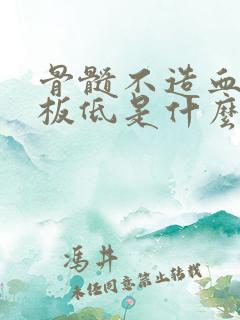 骨髓不造血
板低是什麼
冯井
未经同意禁止转载